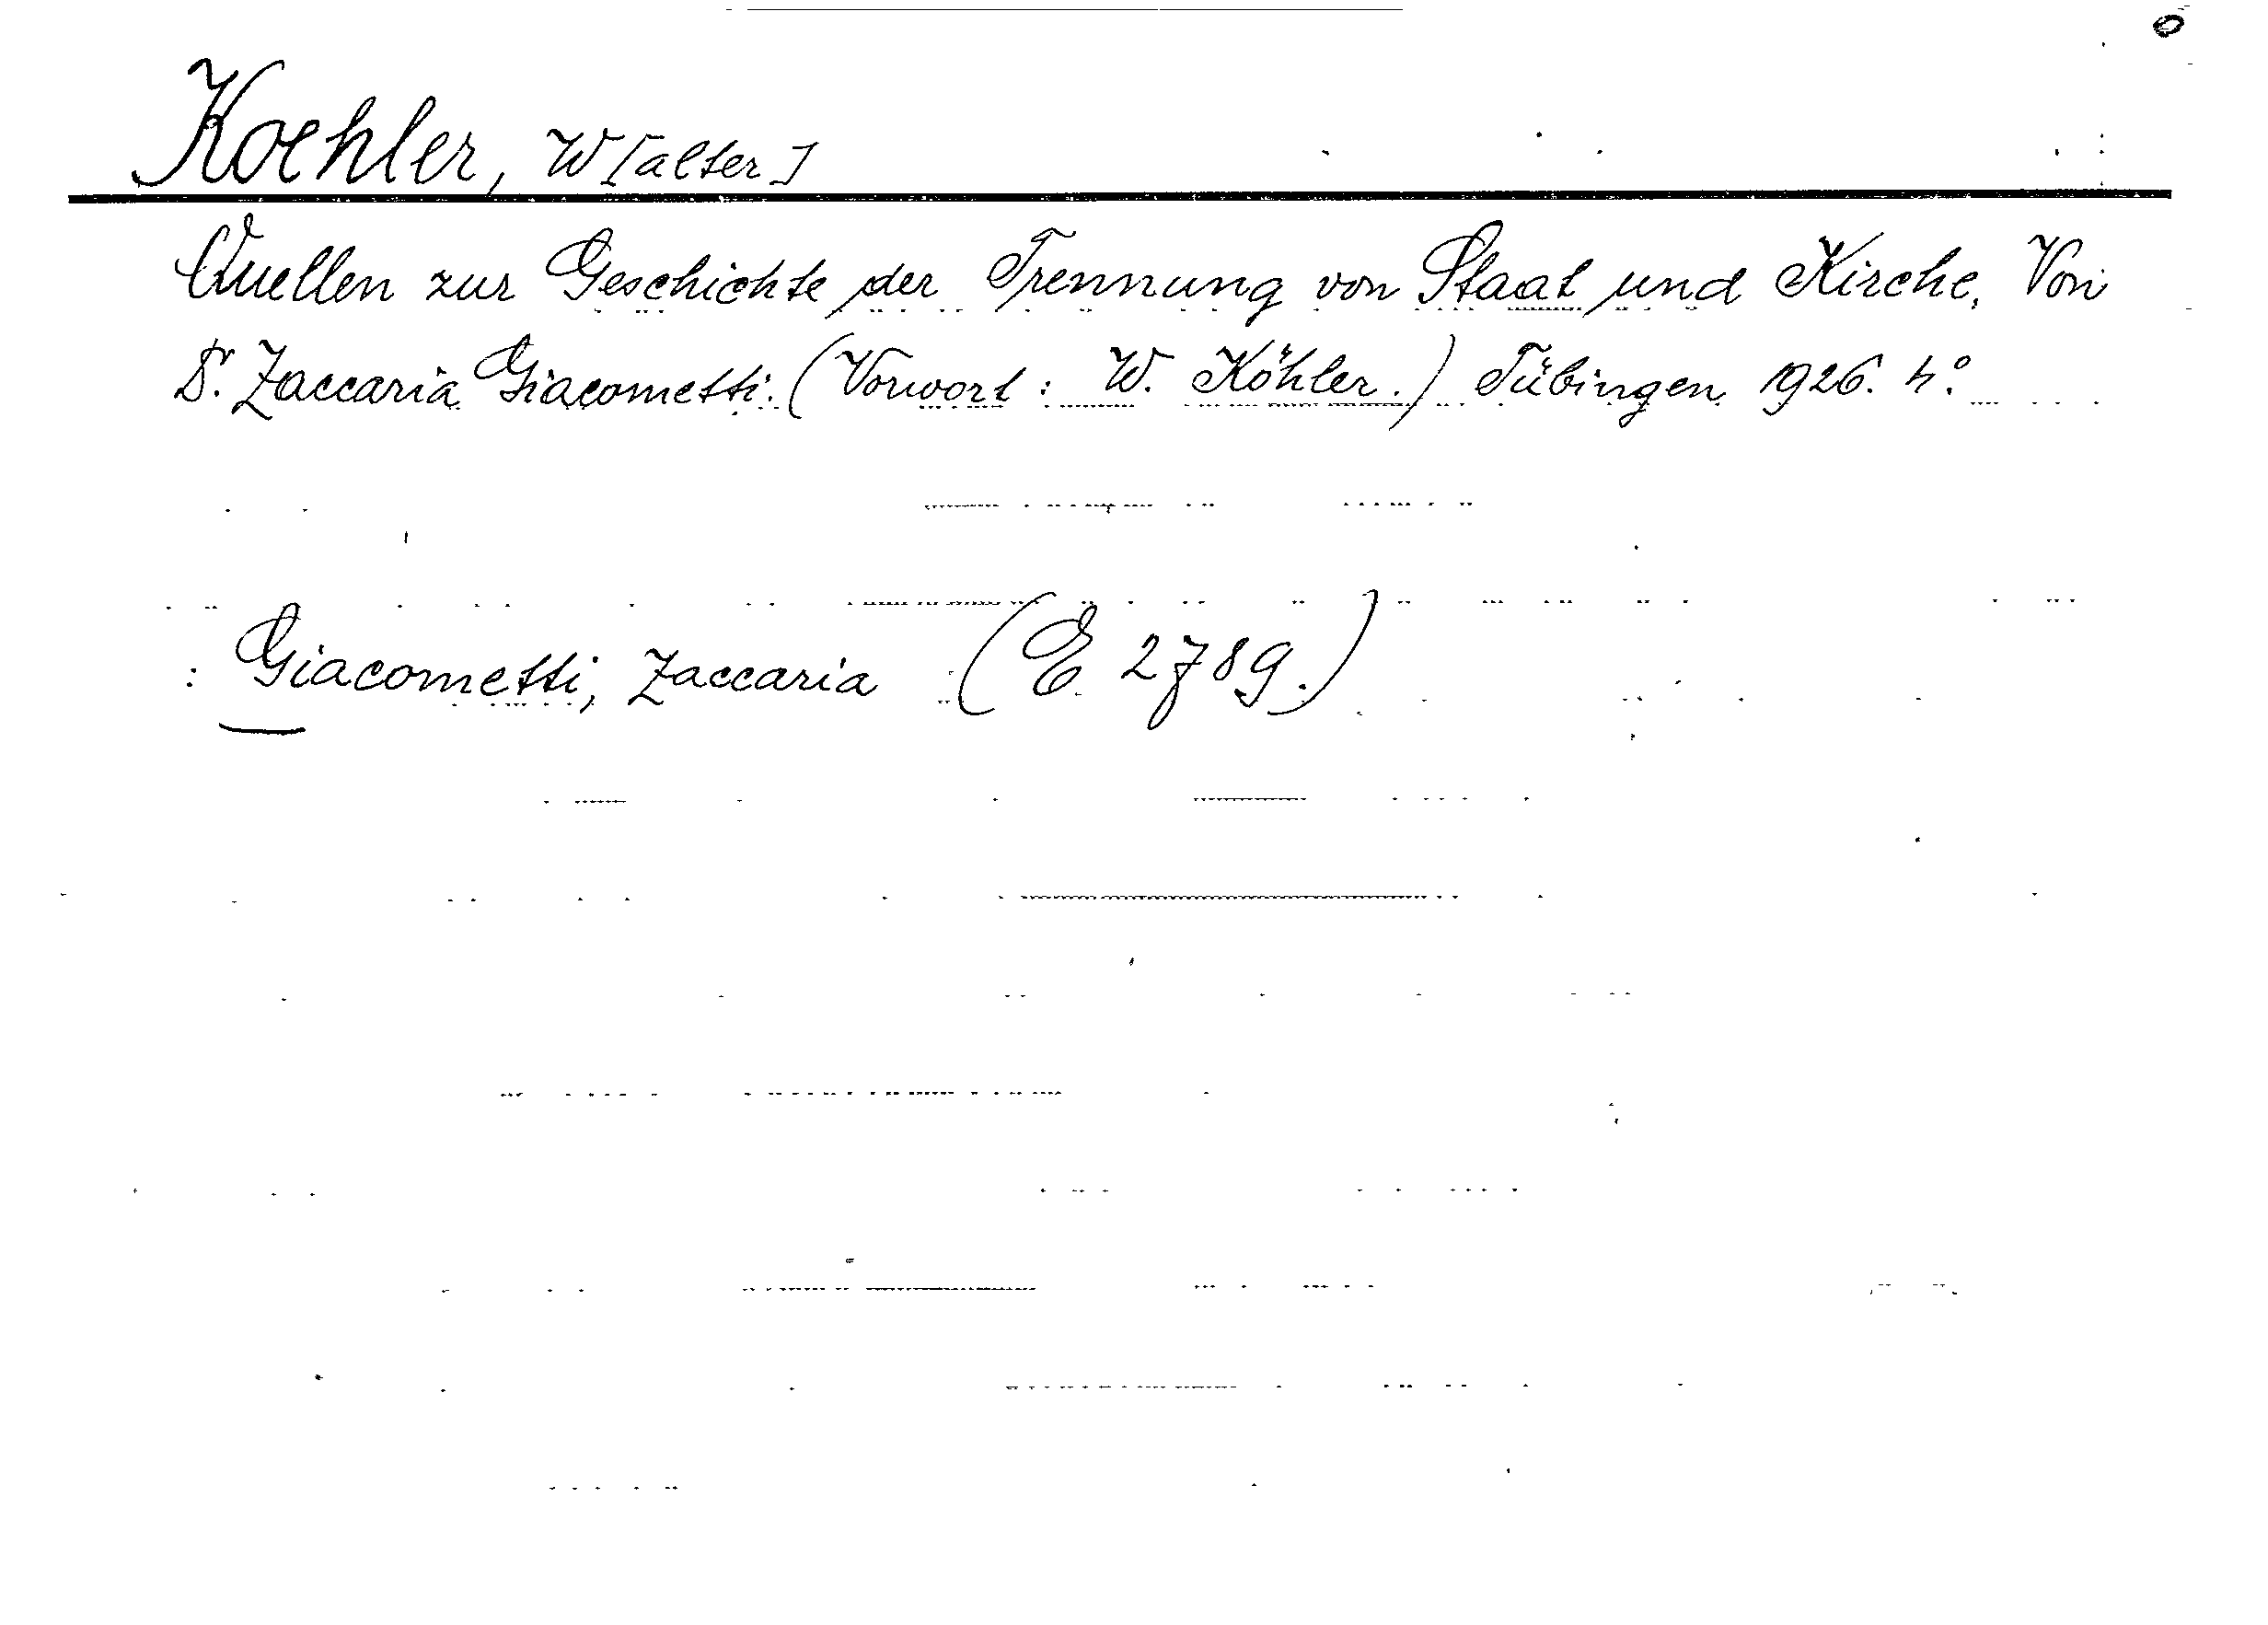 Koehler, W[alter]
Quellen zur Geschichte der Trennung von Staat und Kirche. Von
Dr. Zaccaria Giacometti. (Vorwort: W. Köhler.) Tübingen 1926. 4°.
: Giacometti, Zaccaria (E 2789.)